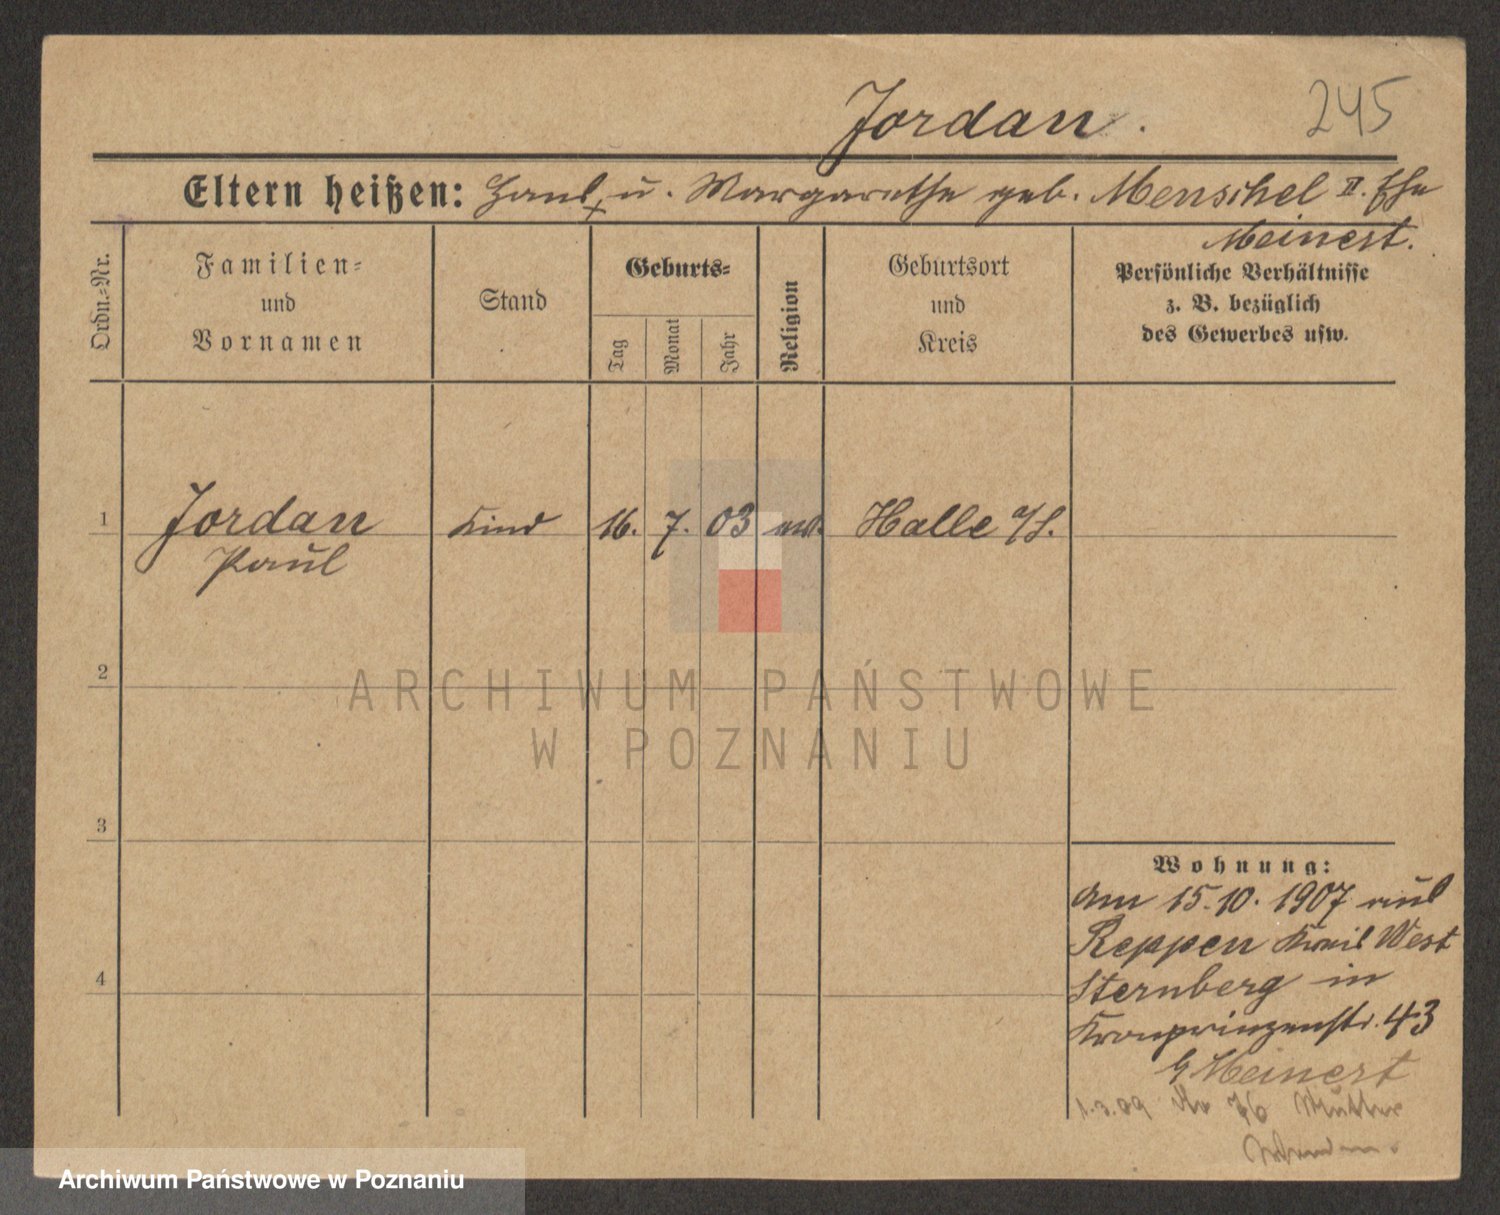 Jordan.
245
Eltern heißen: u. Margarethe geb. Menschel II. Ehe
Meinert.
Ordn.-Nr.
Familien-
und
Vornamen
Stand
Geburts-
Tag
Monat
Jahr
Religion
Geburtsort
und
Kreis
Persönliche Verhältnisse
z. B. bezüglich
des Gewerbes usw.
1
Jordan
Paul
Kind
16.
7.
03
Halle a/S.
2
ARCHIWUM PAŃSTWOWE
W POZNANIU
3
Wohnung:
Am 15.10.1907 aus
Reppen Kreis West
4
Sternberg in
Kronprinzenstr. 43
b Meinert
1.3.09 76 Mutter
Archiwum Państwowe w Poznaniu